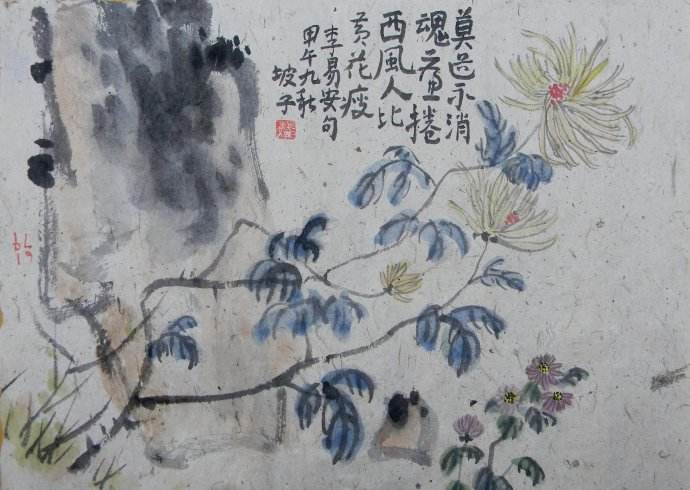 莫道不消
魂帘捲
西風人比
黄花瘦
李易安句
甲午九秋
坡子